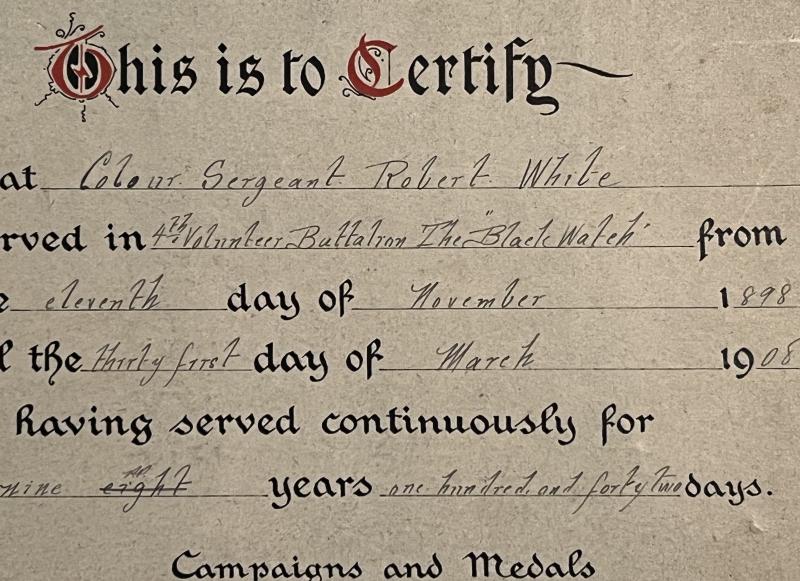 This is to Certify
at Colour Sergeant Robert White
rved in 4th Volunteer Battalion The "Black Watch" from
e eleventh day of November 1898
l the thirty first day of March 1908
having served continuously for
nine eight years one hundred and forty two days.
Campaigns and Medals